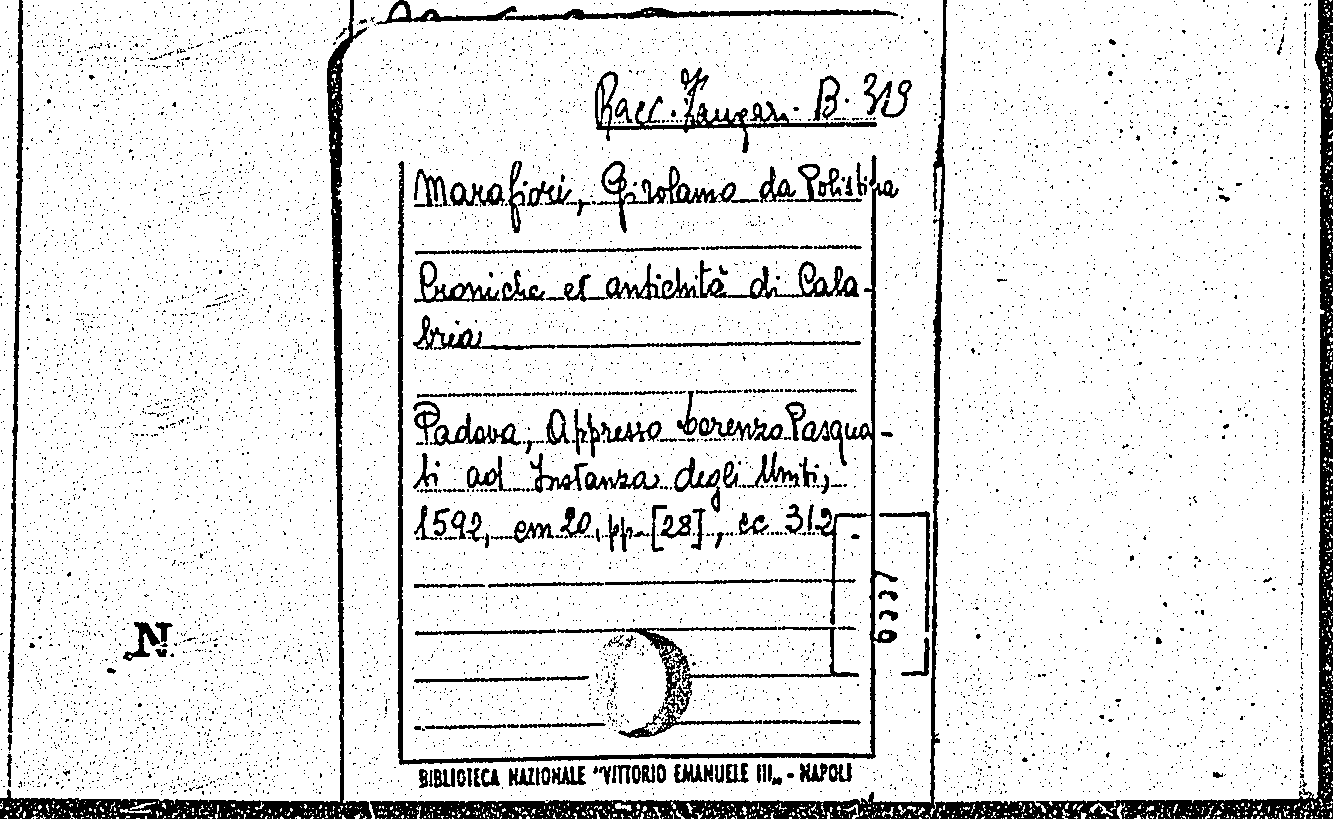 Racc. Zangari B. 319
Marafiori, Girolamo da Polistina
Croniche et antichità di Cala-
bria
Padova, Appresso Lorenzo Pasqua-
ti ad Instanza degli Uniti,
1592, cm 20, pp. [28], cc 312
N
BIBLIOTECA NAZIONALE "VITTORIO EMANUELE III„ - NAPOLI